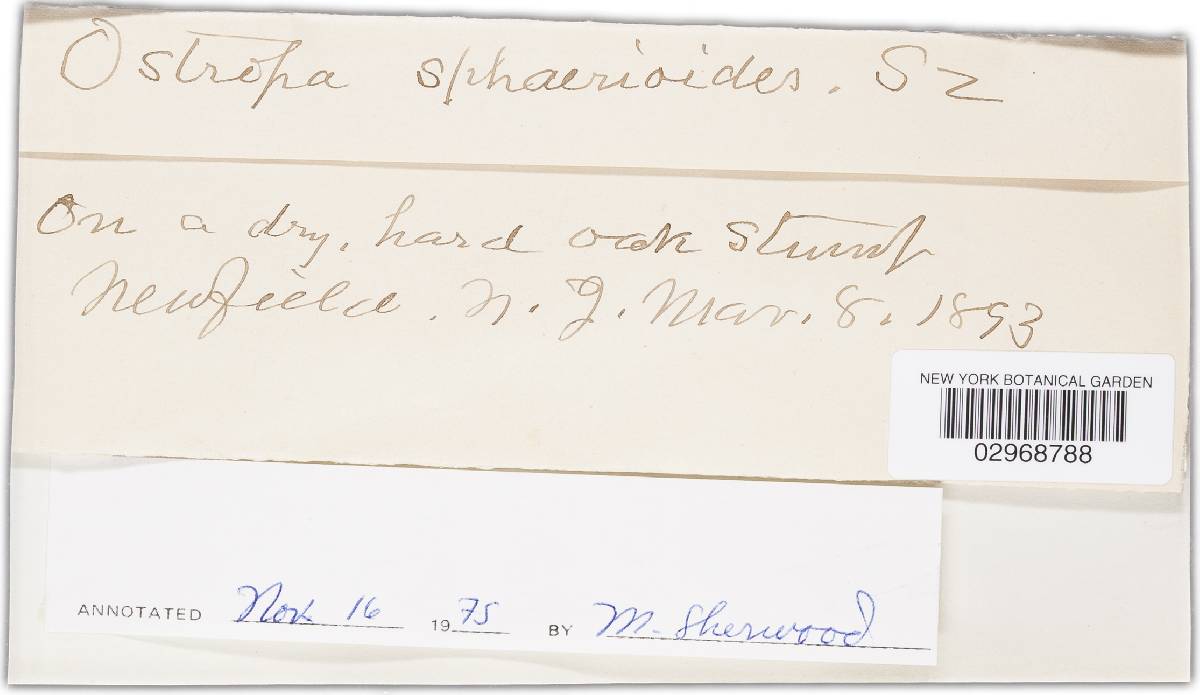 Ostropa sphaerioides. Sz
On a dry, hard oak stump
Newfield. N. J. Mar. 8. 1893
NEW YORK BOTANICAL GARDEN
02968788
ANNOTATED Nov 16 1975 BY M. Sherwood